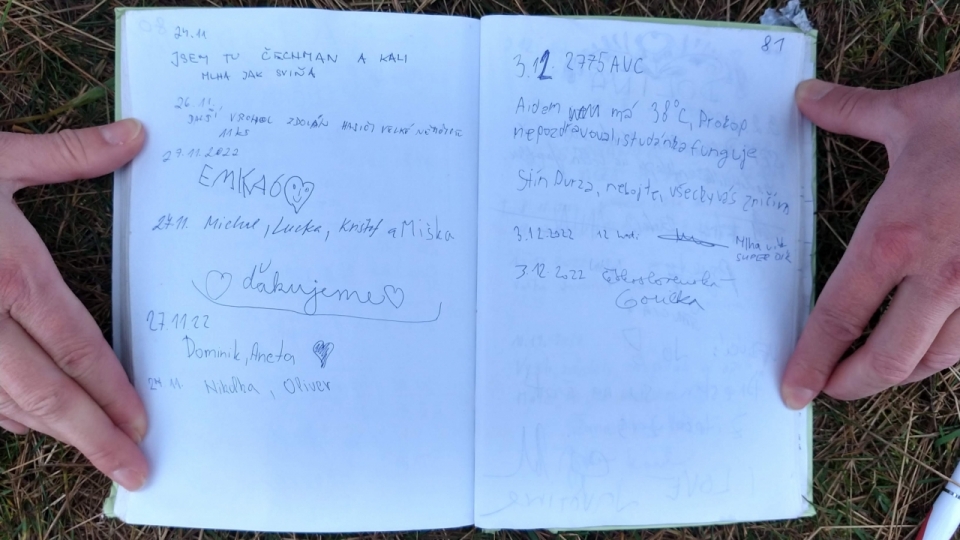 24.11
JSEM TU ČECHMAN A KALI
MLHA JAK SVIŇA
26.11.
DNŠÍ VRCHOL ZDOLÁN HASIČI VELKÉ
11 KS
27.11.2022
EMKA6
27.11. Michal, Lucka, Krištof a Miška
ďakujeme
27.11.22
Dominik, Aneta
27.11. Nikolka, Oliver
81
3.12. 2775 AVC
Aidem má 38°C, Prokop
nepozdravoval, studánka funguje
Stín Durza, nebojte, všecky vás zničím
3.12.2022 12
Mlha
SUPER
3.12.2022
Goučka